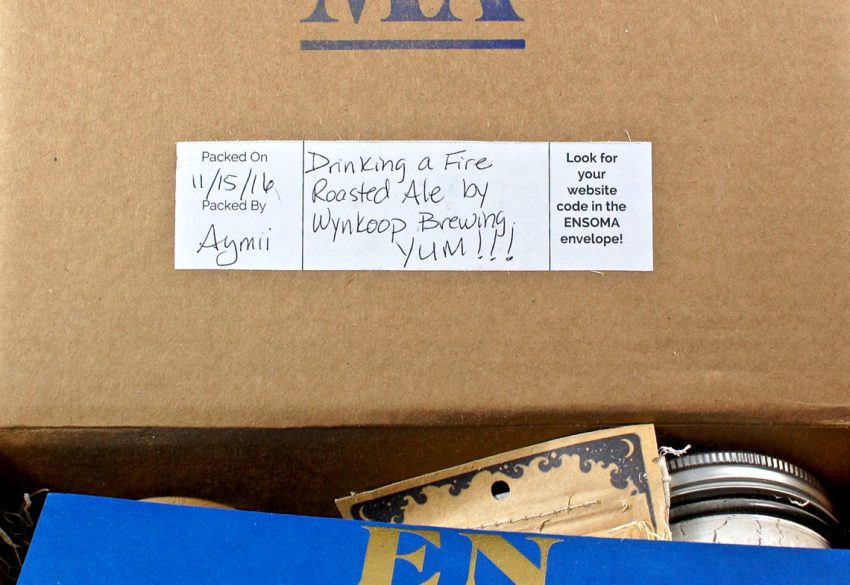 MA
Packed On
11/15/16
Packed By
Aymii
Drinking a Fire
Roasted Ale by
Wynkoop Brewing.
YUM!!!
Look for
your
website
code in the
ENSOMA
envelope!
EN